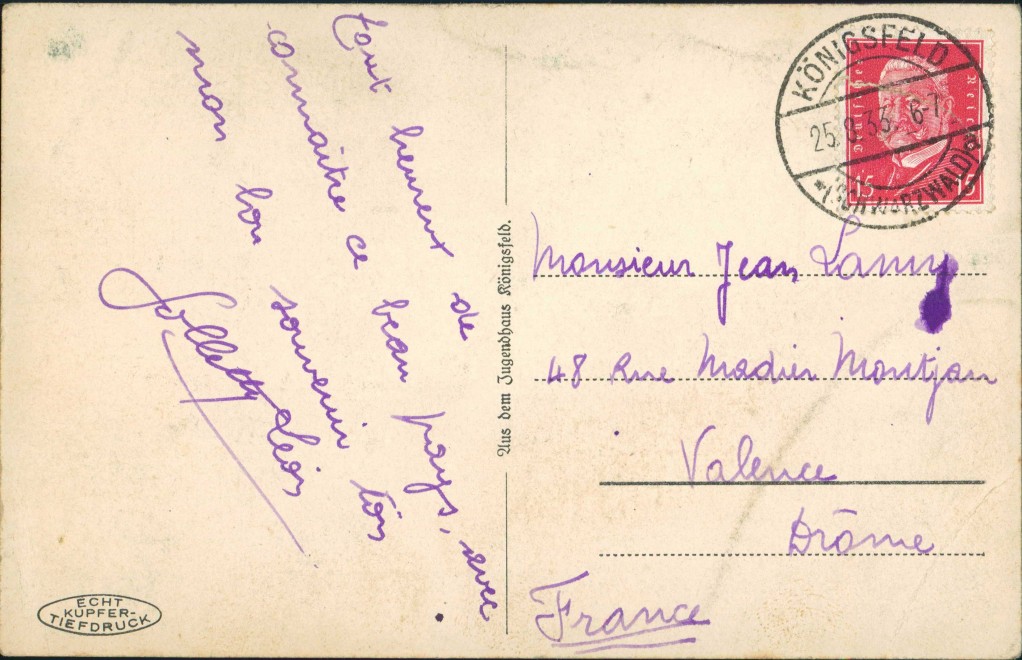 Tout heureux de
connaître ce beau pays, avec
mon bon souvenir
Léon
Aus dem Jugendhaus Königsfeld.
ECHT
KUPFER-
TIEFDRUCK
KÖNIGSFELD
(SCHWARZWALD)
Deutsches Reich
15 15
Monsieur Jean Lamy
48 Rue Madier Montjau
Valence
Drôme
France